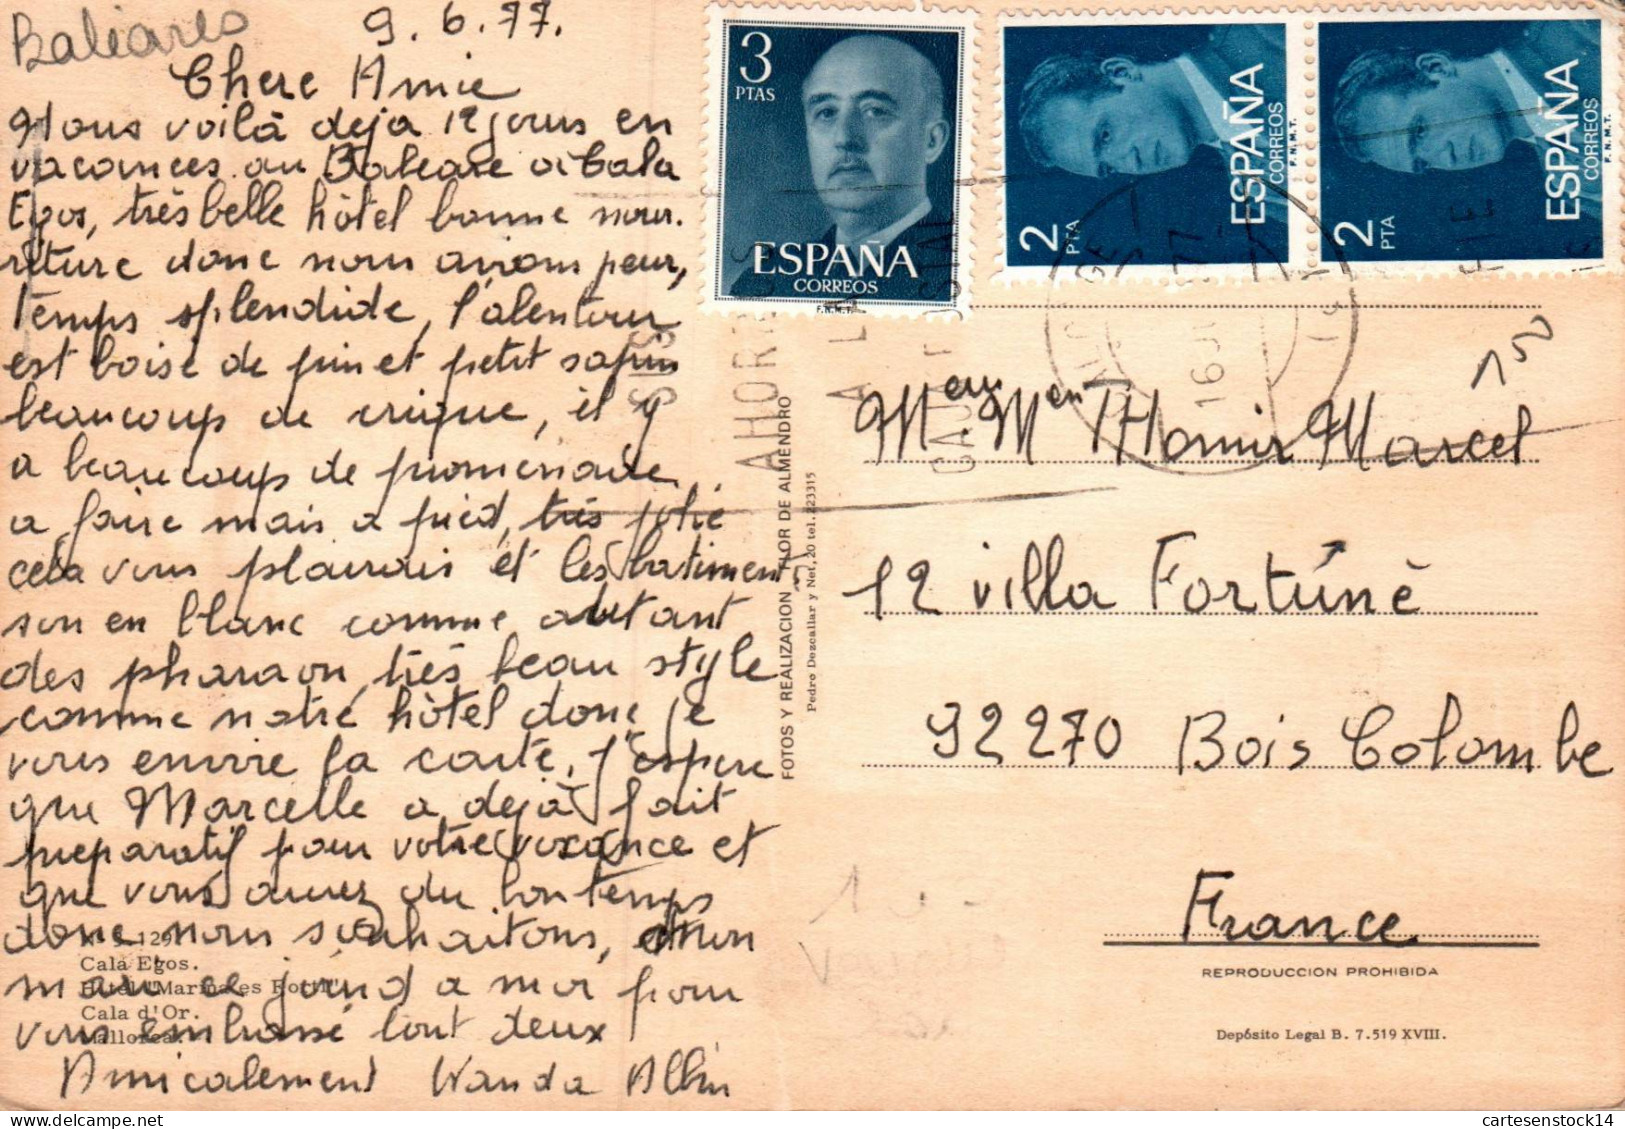 Baleares
9.6.77.
Chere Amie
Nous voilà deja 12 jours en
vacances au Baleare a Cala
Egos, très belle hôtel bonne nour.
riture donc nous avions peur,
temps splendide, l'alentour
est boise de pin et petit sapin
beaucoup de crique, il y
a beaucoup de promenade
a faire mais a pied, très jolie
cela vous plairais et les batiment
son en blanc comme autant
des pharaon, très beau style
comme notre hôtel donc je
vous envoie la carte, j'espere
que Marcelle a dejà fait
preparatif pour votre vacance et
que vous aurez du bon temps
donc nous souhaitons, mon
mari ce joind a moi pour
vous embrassé tout deux
Amicalement Wanda Albin
Cala Egos.
Hotel "Marina
Cala d'Or.
Mallorca.
FOTOS Y REALIZACION FLOR DE ALMENDRO
Pedro Dezcallar y Net, 20 tel. 223315
3
PTAS
ESPAÑA
CORREOS
F.N.M.T.
2
PTA
ESPAÑA
CORREOS
F.N.M.T.
2
PTA
ESPAÑA
CORREOS
F.N.M.T.
AHOR
A LA
16
150
Marcel
12 villa Fortuné
92270 Bois Colombe
France
REPRODUCCION PROHIBIDA
Depósito Legal B. 7.519 XVIII.
cartesenstock14